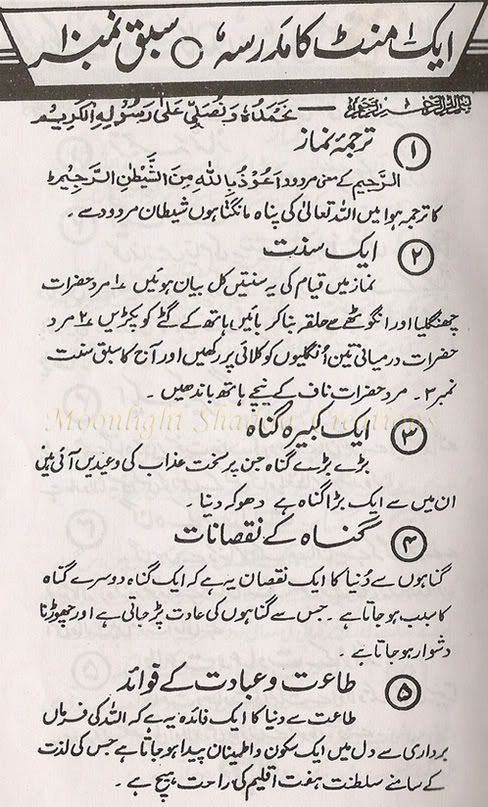 ایک منٹ کا مدرسہ، سبق نمبر ۱۰
بسم اللہ الرحمن الرحیم — نَحْمَدُہٗ وَنُصَلِّیْ عَلٰی رَسُوْلِہِ الْکَرِیْم
۱ ترجمۂ نماز
الرَّجِیم کے معنی مردود اَعُوْذُ بِاللّٰہِ مِنَ الشَّیْطٰنِ الرَّجِیْمِ
کا ترجمہ ہوا میں اللہ تعالیٰ کی پناہ مانگتا ہوں شیطان مردود سے۔
۲ ایک سنت
نماز میں قیام کی یہ سنتیں کل بیان ہوئیں ۱۔ مرد حضرات
چھنگلیا اور انگوٹھے سے حلقہ بنا کر بائیں ہاتھ کے گٹے کو پکڑیں ۲۔ مرد
حضرات درمیانی تین اُنگلیوں کو کلائی پر رکھیں اور آج کا سبق سنت
نمبر ۳۔ مرد حضرات ناف کے نیچے ہاتھ باندھیں۔
Moonlight Shadow Creations
۳ ایک کبیرہ گناہ
بڑے بڑے گناہ جن پر سخت عذاب کی وعیدیں آئی ہیں
ان میں سے ایک بڑا گناہ ہے دھوکہ دینا۔
۴ گناہ کے نقصانات
گناہوں سے دُنیا کا ایک نقصان یہ ہے کہ ایک گناہ دوسرے گناہ
کا سبب ہو جاتا ہے۔ جس سے گناہوں کی عادت پڑ جاتی ہے اور چھوڑنا
دشوار ہو جاتا ہے۔
۵ طاعت و عبادت کے فوائد
طاعت سے دنیا کا ایک فائدہ یہ ہے کہ اللہ کی فرماں
برداری سے دل میں ایک سکون و اطمینان پیدا ہو جاتا ہے جس کی لذت
کے سامنے سلطنت ہفت اقلیم کی راحت ہیچ ہے۔